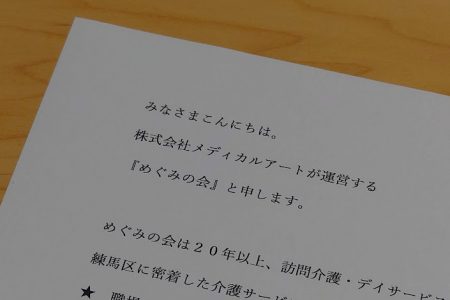 みなさまこんにちは。
株式会社メディカルアートが運営する
『めぐみの会』と申します。
めぐみの会は２０年以上、訪問介護・デイサービス
練馬区に密着した介護サービ
★ 職場